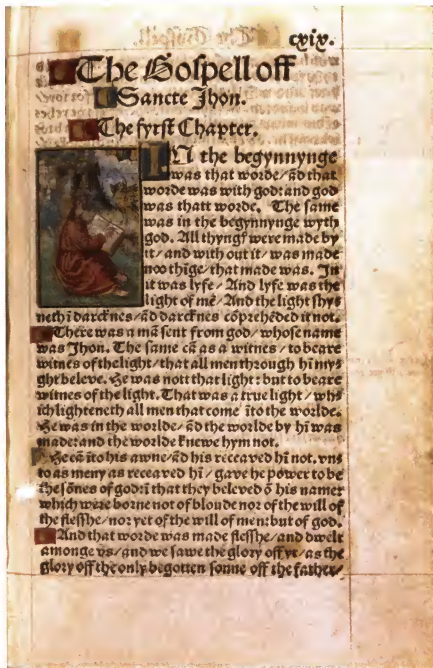 cxix.
The Gospell off
Sancte Jhon.
The fyrst Chapter.
IN the begynnynge
was that worde/ ãd that
worde was with god: and god
was thatt worde. The same
was in the begynnynge wyth
god. All thyngꝭ were made by
it/ and with out it/ was made
noo thige/ that made was. In
it was lyfe/ And lyfe was the
light of mẽ/ And the light shys
neth ĩ darcknes/ ãd darcknes cõprehẽded it not.
There was a mã sent from god/ whose name
was Jhon. The same cã as a witnes/ to beare
witnes of the light/ that all men through hĩ mys
ght beleve. He was nott that light: but to beare
witnes of the light. That was a true light/ whs
ich lighteneth all men that come ĩto the worlde.
He was in the worlde/ ãd the worlde by hĩ was
made: and the worlde knewe hym not.
He cã ĩto his awne/ ãd his receaved hĩ not. vns
to as meny as receaved hĩ/ gave he power to be
the sõnes of god: ĩ that they beleved õ his name:
which were borne not of bloude nor of the will of
the flesshe/ nor yet of the will of men: but of god.
And that worde was made flesshe/ and dwelt
amonge vs/ and we sawe the glory off yt/ as the
glory off the only begotten sonne off the father/